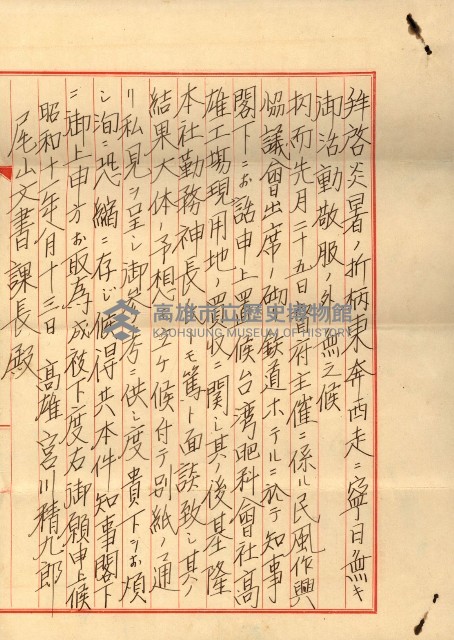 拝啓炎暑ノ折柄東奔西走ニ寧日無キ
御活動敬服ノ外無之候
扨而先月二十五日督府主催ニ係ル民風作興
協議會出席ノ砌鉄道ホテルニ於テ知事
閣下ニお話申上置候台湾肥料會社高
雄工場現用地ノ買収ニ関シ其ノ後基隆
本社勤務神長 トモ篤ト面談致シ其ノ
結果大体ノ予相 ツケ候付テ別紙ノ通
リ私見ヲ呈シ御参考ニ供シ度貴下ヲお煩
シ洵ニ恐縮ニ存じ候得共本件知事閣下
ニ御上申方お取為シ成被下度右御願申上候
昭和十一年八月十三日 高雄 宮川精九郎
尾山文書課長殿
高雄市立歷史博物館
KAOHSIUNG MUSEUM OF HISTORY